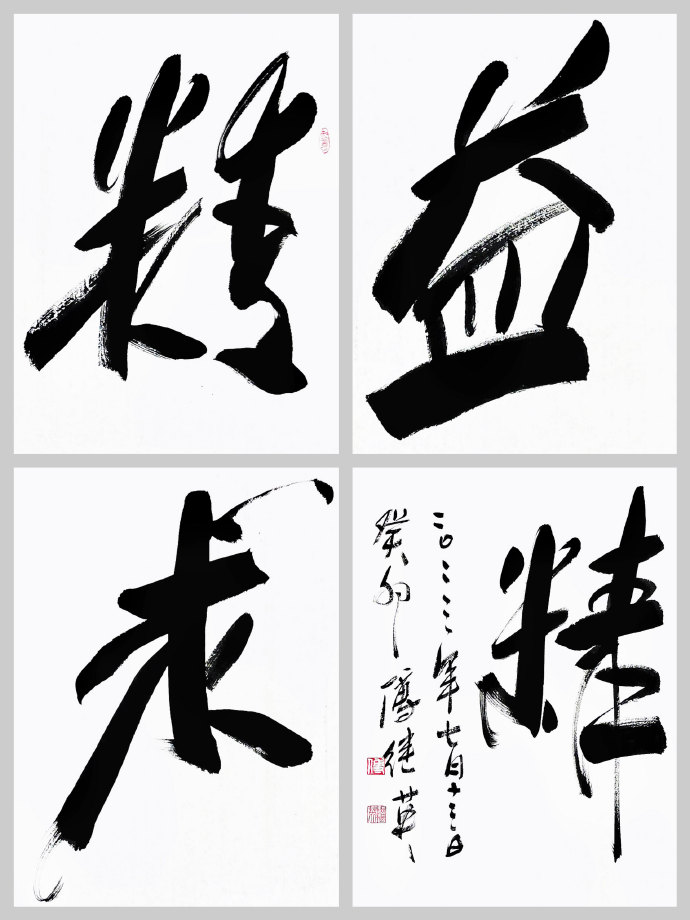 精
益
求
精
二〇二三年七月十三日
癸卯 傅继英